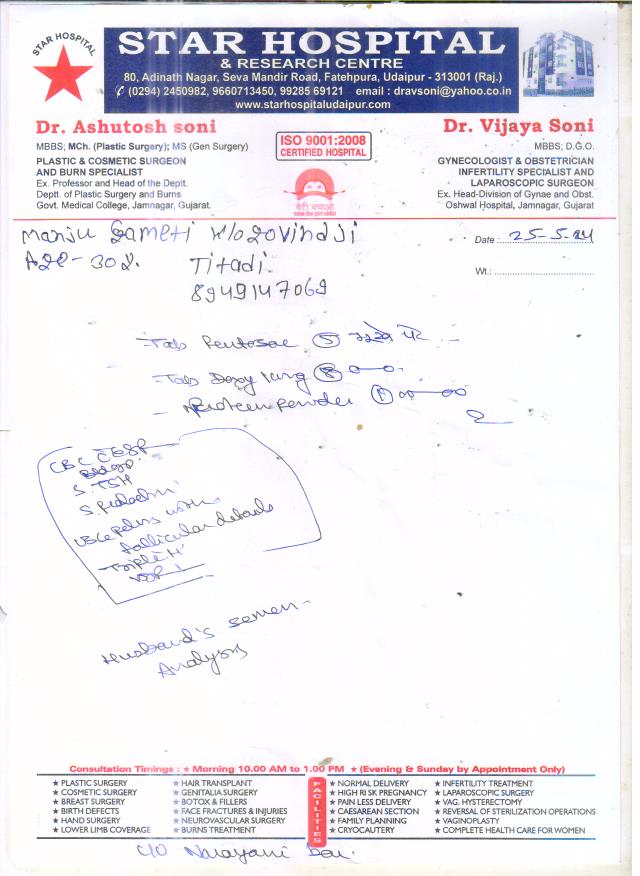 STAR HOSPITAL
STAR HOSPITAL
& RESEARCH CENTRE
80, Adinath Nagar, Seva Mandir Road, Fatehpura, Udaipur - 313001 (Raj.)
(0294) 2450982, 9660713450, 99285 69121 email : dravsoni@yahoo.co.in
www.starhospitaludaipur.com
Dr. Ashutosh soni
MBBS; MCh. (Plastic Surgery); MS (Gen Surgery)
PLASTIC & COSMETIC SURGEON
AND BURN SPECIALIST
Ex. Professor and Head of the Deptt.
Deptt. of Plastic Surgery and Burns
Govt. Medical College, Jamnagar, Gujarat.
ISO 9001:2008
CERTIFIED HOSPITAL
बेटी बचाओ
Dr. Vijaya Soni
MBBS; D.G.O.
GYNECOLOGIST & OBSTETRICIAN
INFERTILITY SPECIALIST AND
LAPAROSCOPIC SURGEON
Ex. Head-Division of Gynae and Obst.
Oshwal Hospital, Jamnagar, Gujarat
Manju Gameti W/o Govindji
Age - 30 Y.
Titadi
8949147069
Date : 25-5-24
Wt.:
- Tab
- Tab
- Protein powder
CBC ESR
S. TSH
follicular details
Triple H
Husband's semen
Analysis
Consultation Timings : ★ Morning 10.00 AM to 1.00 PM ★ (Evening & Sunday by Appointment Only)
★ PLASTIC SURGERY
★ COSMETIC SURGERY
★ BREAST SURGERY
★ BIRTH DEFECTS
★ HAND SURGERY
★ LOWER LIMB COVERAGE
★ HAIR TRANSPLANT
★ GENITALIA SURGERY
★ BOTOX & FILLERS
★ FACE FRACTURES & INJURIES
★ NEUROVASCULAR SURGERY
★ BURNS TREATMENT
FACILITIES
★ NORMAL DELIVERY
★ HIGH RISK PREGNANCY
★ PAIN LESS DELIVERY
★ CAESAREAN SECTION
★ FAMILY PLANNING
★ CRYOCAUTERY
★ INFERTILITY TREATMENT
★ LAPAROSCOPIC SURGERY
★ VAG. HYSTERECTOMY
★ REVERSAL OF STERILIZATION OPERATIONS
★ VAGINOPLASTY
★ COMPLETE HEALTH CARE FOR WOMEN
C/O Narayani Bai